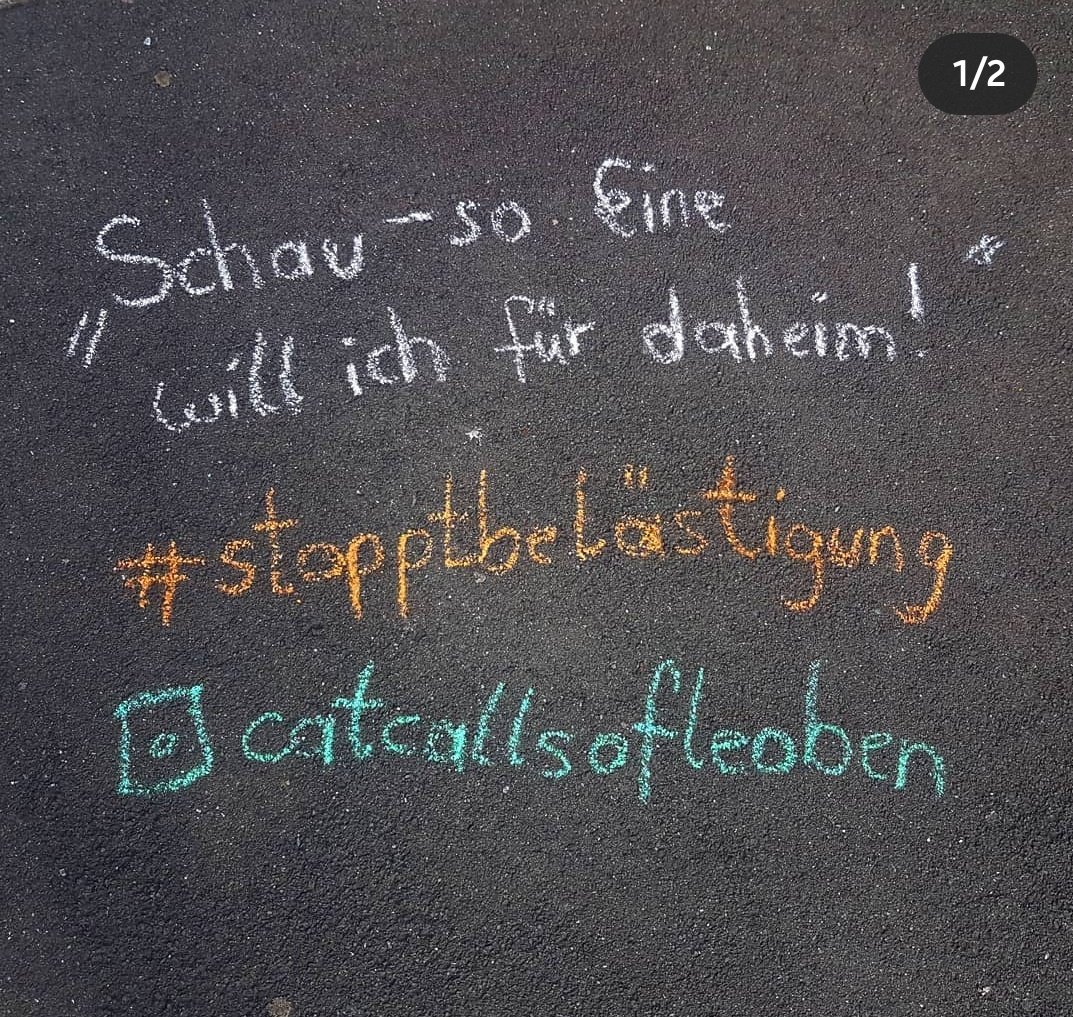 1/2
„Schau - so Eine
will ich für daheim!“
#stopptbelästigung
catcallsofleoben